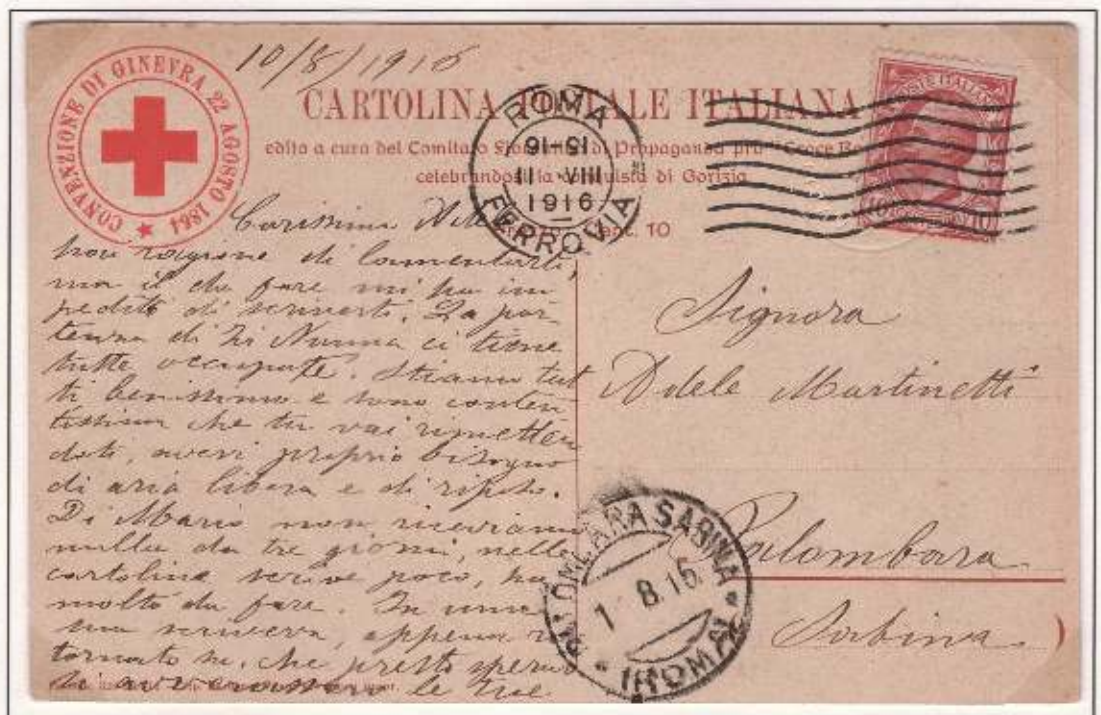 10/8/1916
CONVENZIONE DI GINEVRA 22 AGOSTO 1864
CARTOLINA POSTALE ITALIANA
edita a cura del Comitato di Propaganda pro "Croce
celebrandosi la conquista di Gorizia
Cent. 10
ROMA
15-16
11 VIII
1916
FERROVIA
POSTE ITALIANE
10 10
Carissima
hai ragione di lamentarti,
ma il da fare mi ha im
pedito di scriverti. La par
tenza di Zi Nunna ci tiene
tutte occupate. Stiamo tut
ti benissimo e sono conten
tissima che tu vai rimetten
doti, avevi proprio bisogno
di aria libera e di riposo.
Di Mario non riceviamo
nulla da tre giorni, nelle
cartoline scrive poco, ha
molto da fare. In una
mi scriveva, appena ri
tornato su, che presto
le tue
Signora
Adele Martinetti
Palombara
Sabina
PALOMBARA SABINA
8 16
(ROMA)